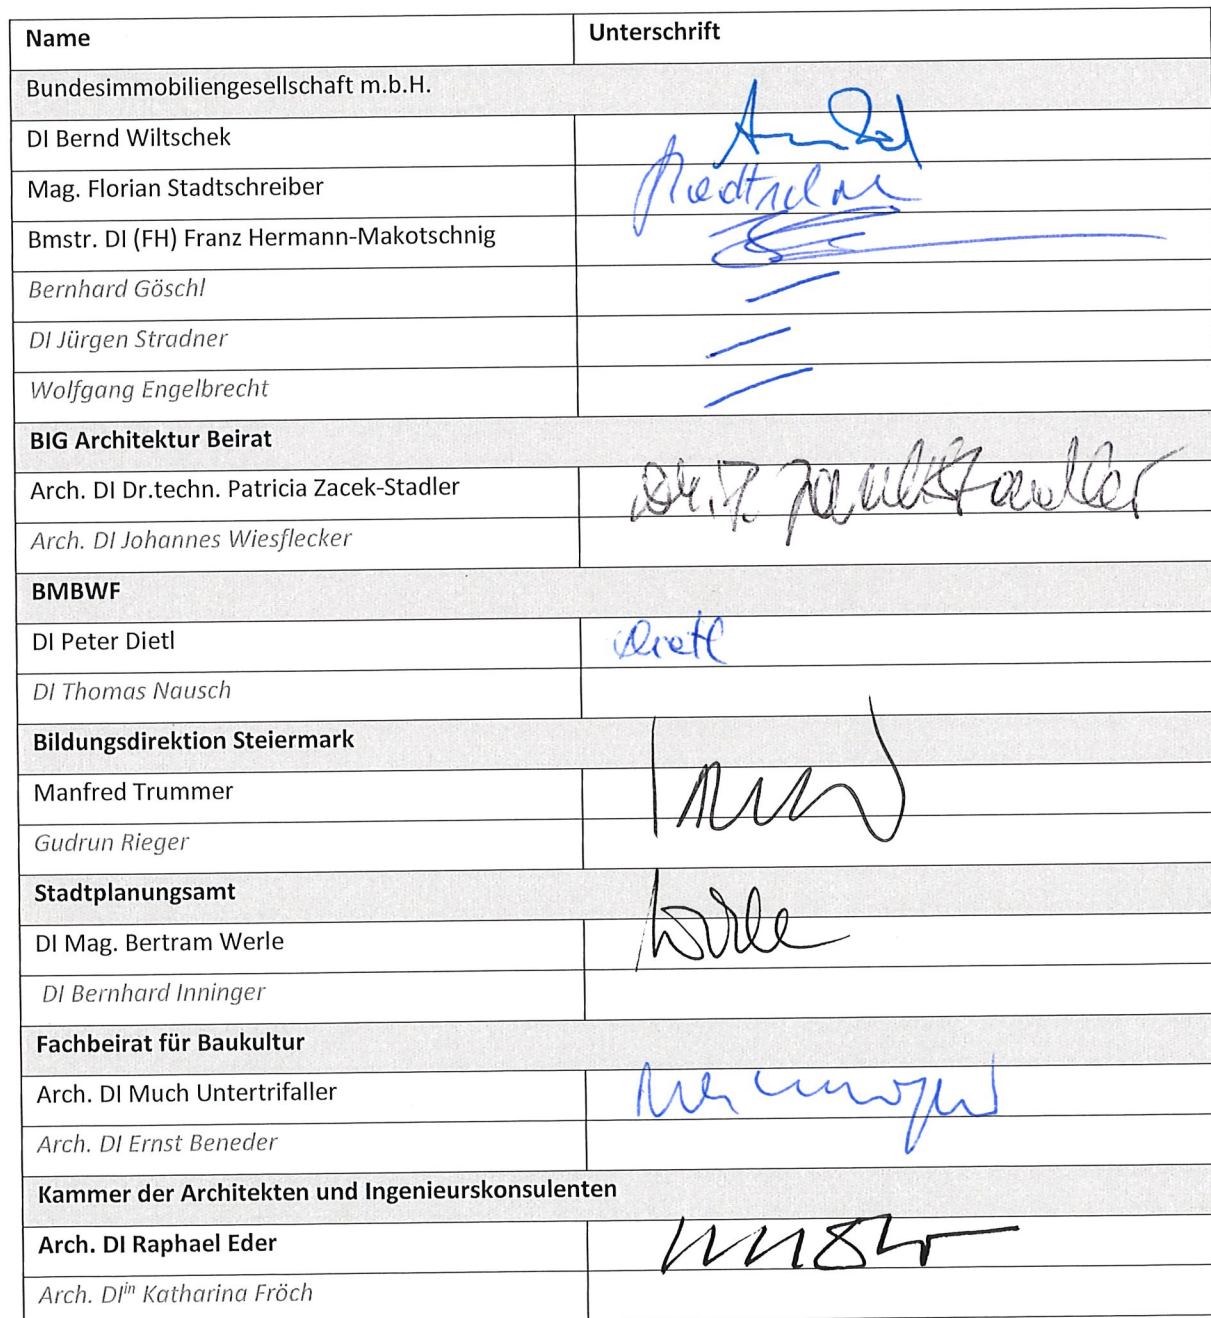 Name Unterschrift
Bundesimmobiliengesellschaft m.b.H.
DI Bernd Wiltschek
Mag. Florian Stadtschreiber
Bmstr. DI (FH) Franz Hermann-Makotschnig
Bernhard Göschl
DI Jürgen Stradner
Wolfgang Engelbrecht
BIG Architektur Beirat
Arch. DI Dr.techn. Patricia Zacek-Stadler
Arch. DI Johannes Wiesflecker
BMBWF
DI Peter Dietl Dietl
DI Thomas Nausch
Bildungsdirektion Steiermark
Manfred Trummer
Gudrun Rieger
Stadtplanungsamt
DI Mag. Bertram Werle
DI Bernhard Inninger
Fachbeirat für Baukultur
Arch. DI Much Untertrifaller
Arch. DI Ernst Beneder
Kammer der Architekten und Ingenieurskonsulenten
Arch. DI Raphael Eder
Arch. DIin Katharina Fröch